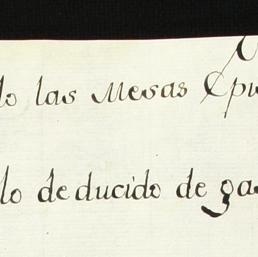 do las Mesas Epis
lo deducido de gas